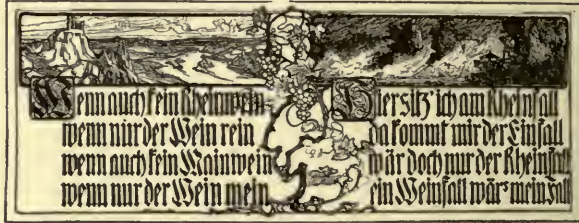 Wenn auch kein Rheinwein
wenn nur der Wein rein
wenn auch kein Mainwein
wenn nur der Wein mein
Hier sitz' ich am Rheinfall
da kommt mir der Einfall
wär doch nur der Rheinfall
ein Weinfall wär's mein Fall